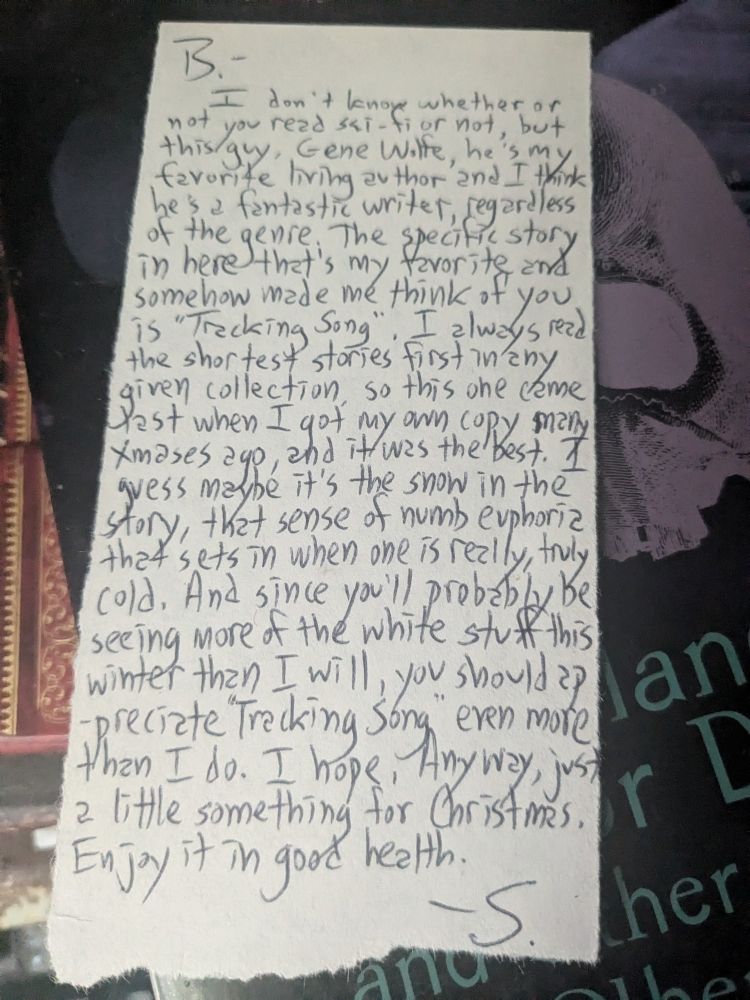 B.-
I don't know whether or
not you read sci-fi or not, but
this guy, Gene Wolfe, he's my
favorite living author and I think
he's a fantastic writer, regardless
of the genre. The specific story
in here that's my favorite and
somehow made me think of you
is "Tracking Song". I always read
the shortest stories first in any
given collection, so this one came
last when I got my own copy many
xmases ago, and it was the best. I
guess maybe it's the snow in the
story, that sense of numb euphoria
that sets in when one is really, truly
cold. And since you'll probably be
seeing more of the white stuff this
winter than I will, you should ap
-preciate "Tracking Song" even more
than I do. I hope. Anyway, just
a little something for Christmas.
Enjoy it in good health.
-S.
lan
or D
and
ther
Othe